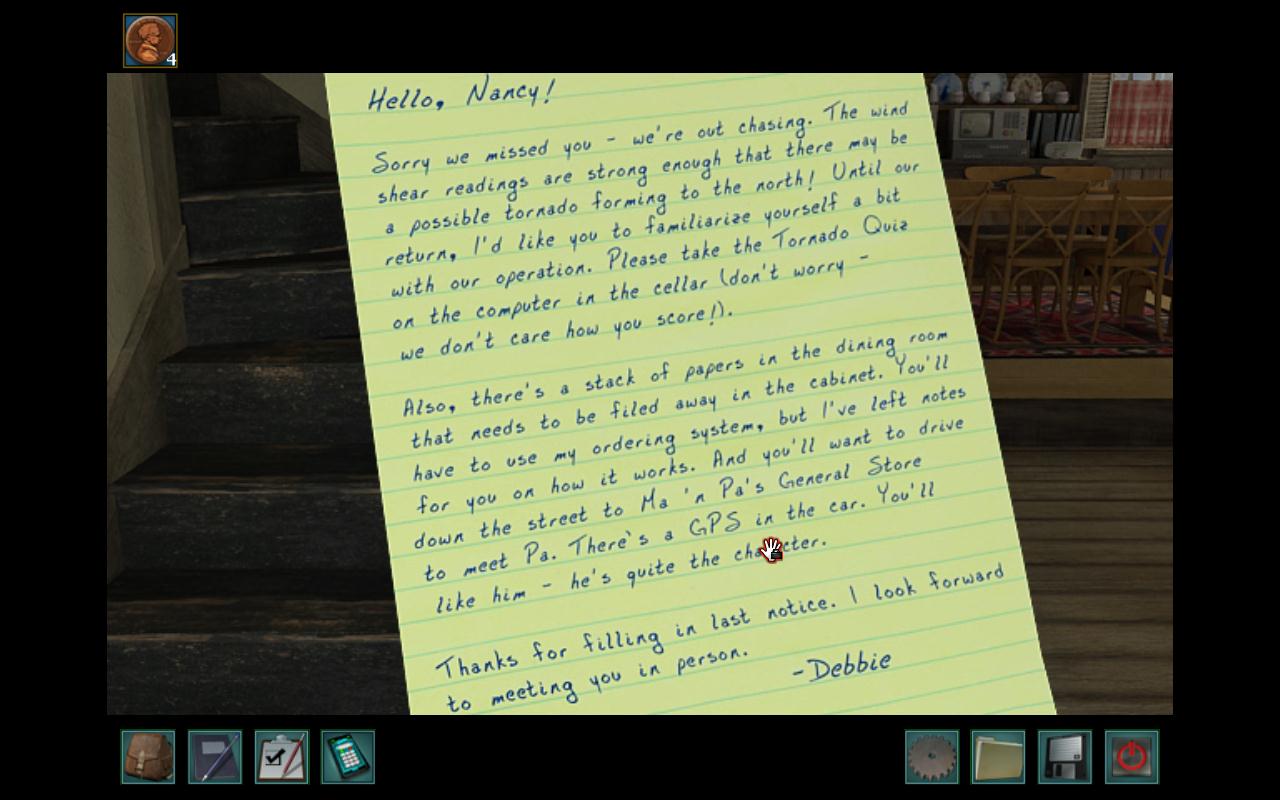 4
Hello, Nancy!
Sorry we missed you - we're out chasing. The wind
shear readings are strong enough that there may be
a possible tornado forming to the north! Until our
return, I'd like you to familiarize yourself a bit
with our operation. Please take the Tornado Quiz
on the computer in the cellar (don't worry -
we don't care how you score!).
Also, there's a stack of papers in the dining room
that needs to be filed away in the cabinet. You'll
have to use my ordering system, but I've left notes
for you on how it works. And you'll want to drive
down the street to Ma 'n Pa's General Store
to meet Pa. There's a GPS in the car. You'll
like him - he's quite the character.
Thanks for filling in last notice. I look forward
to meeting you in person.
-Debbie